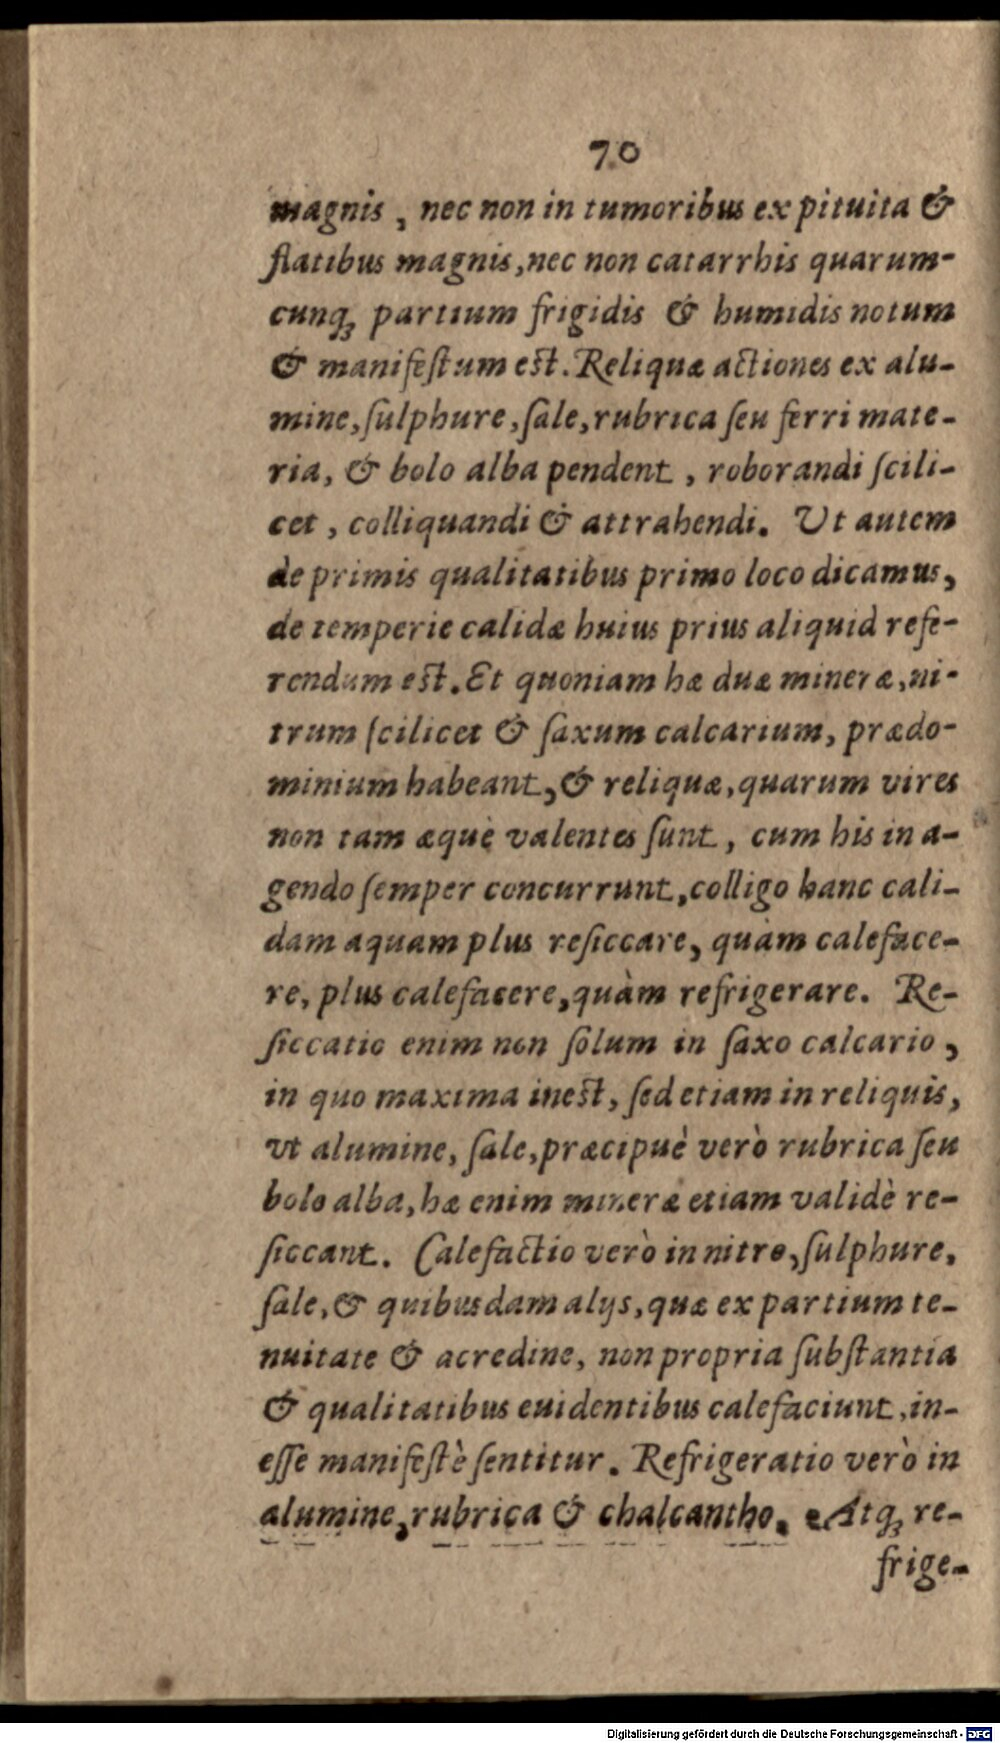 70
magnis, nec non in tumoribus ex pituita &
flatibus magnis, nec non catarrhis quarum-
cunq; partium frigidis & humidis notum
& manifeſtum eſt. Reliquæ actiones ex alu-
mine, ſulphure, ſale, rubrica ſeu ferri mate-
ria, & bolo alba pendent, roborandi ſcili-
cet, colliquandi & attrahendi. Ut autem
de primis qualitatibus primo loco dicamus,
de temperie calidæ huius prius aliquid refe-
rendum eſt. Et quoniam hæ duæ mineræ, ni-
trum ſcilicet & ſaxum calcarium, prædo-
minium habeant, & reliquæ, quarum vires
non tam æquè valentes ſunt, cum his in a-
gendo ſemper concurrunt, colligo hanc cali-
dam aquam plus reſiccare, quàm caleface-
re, plus calefacere, quàm refrigerare. Re-
ſiccatio enim non ſolum in ſaxo calcario,
in quo maxima ineſt, ſed etiam in reliquis,
vt alumine, ſale, præcipuè verò rubrica ſeu
bolo alba, hæ enim mineræ etiam validè re-
ſiccant. Calefactio verò in nitro, ſulphure,
ſale, & quibusdam alijs, quæ ex partium te-
nuitate & acredine, non propria ſubſtantia
& qualitatibus euidentibus calefaciunt, in-
eſſe manifeſtè ſentitur. Refrigeratio verò in
alumine, rubrica & chalcantho. Atq; re-
frige-
Digitalisierung gefördert durch die Deutsche Forschungsgemeinschaft - DFG